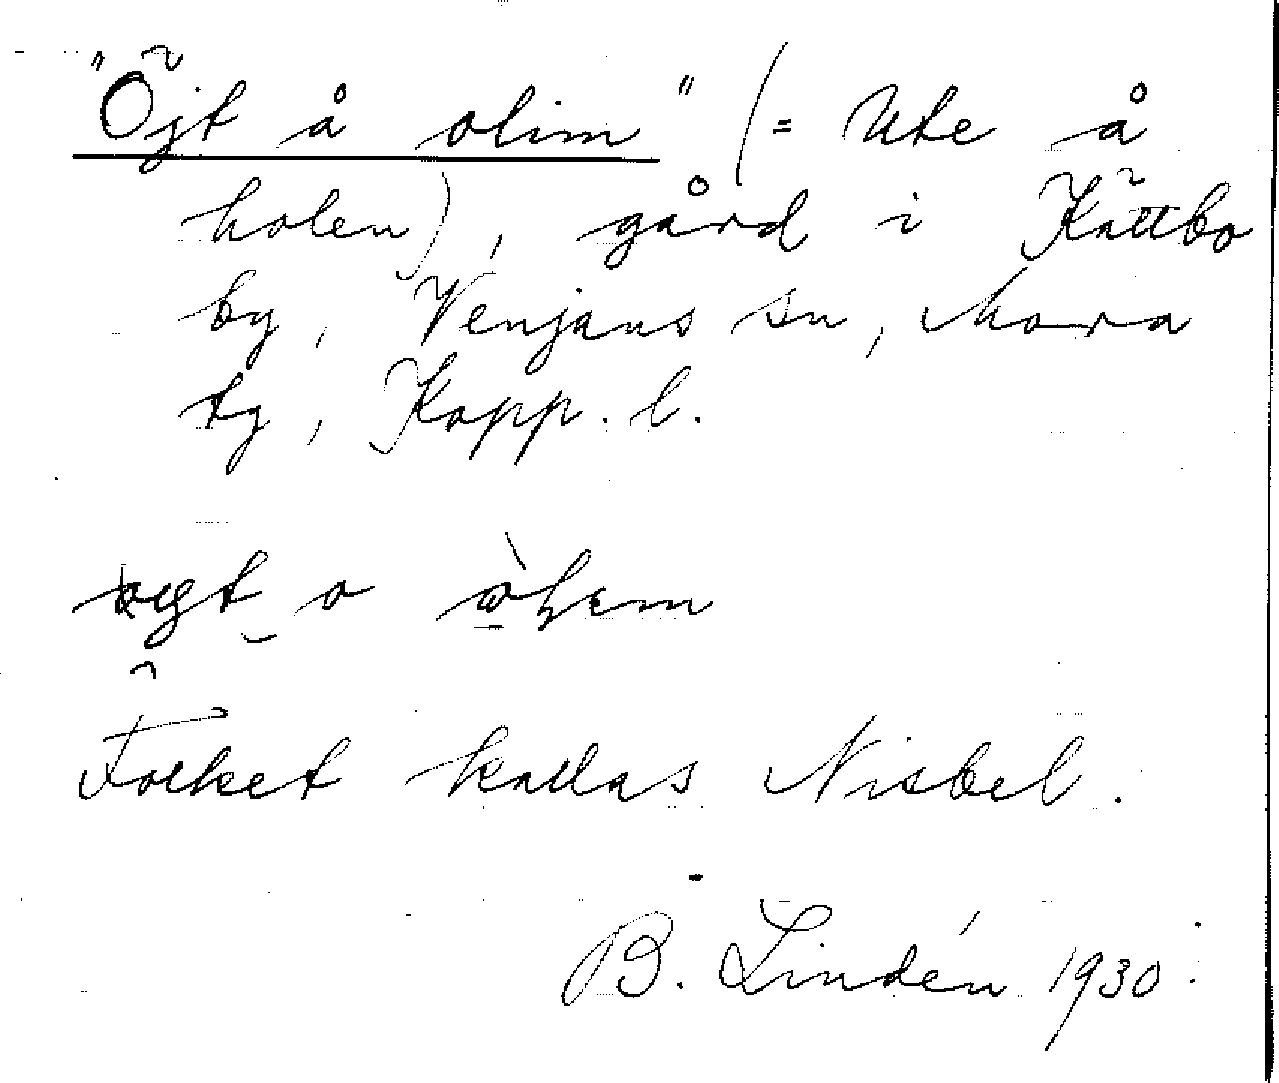 "Öjt å olim" (= Ute å
holen), gård i Kättbo
by, Venjans sn, Mora
tg, Kopp. l.
Folket kallas Nisbel.
B. Lindén 1930.